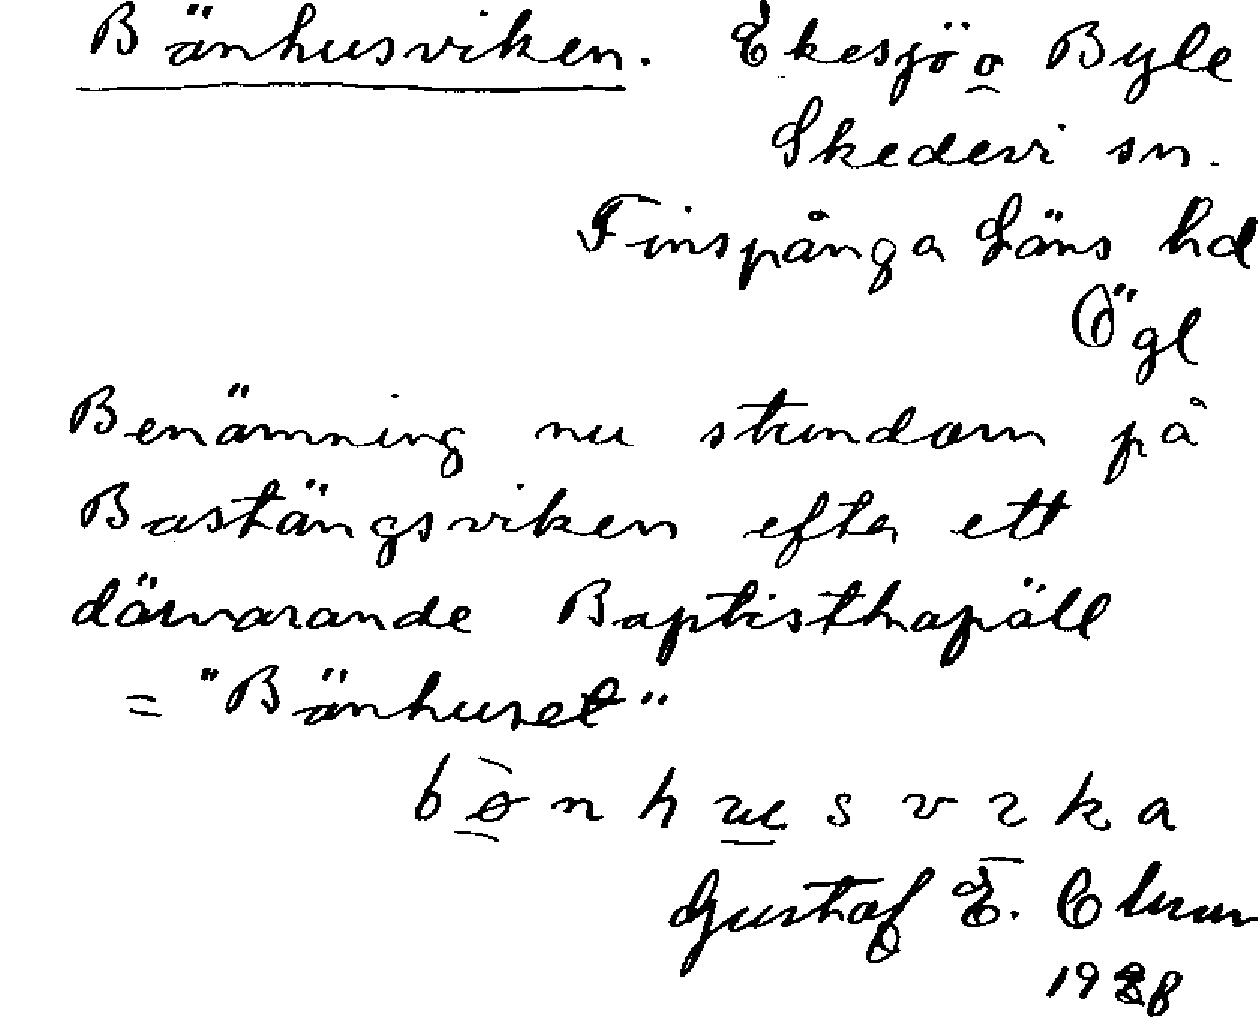 Bänhusviken. Ekesjö o Byle
Skedevi sn.
Finspånga Läns hd
Ögl
Benämning nu stundom på
Bastängsviken efter ett
därvarande Baptistkapäll
= "Bänhuset"
Gustaf E.